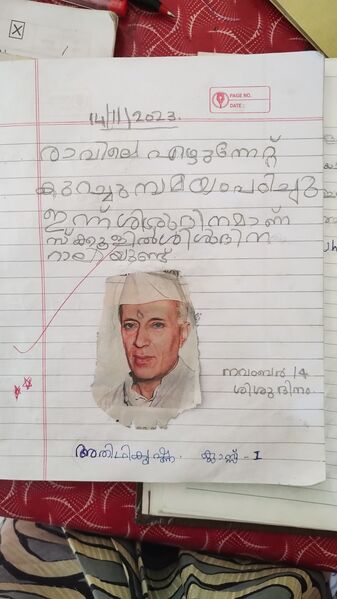 PAGE NO.
DATE:
14/11/2023.
രാവിലെ എഴുന്നേറ്റ്
കുറച്ചു സമയം പഠിച്ചു
ഇന്ന് ശിശുദിനമാണ്
സ്ക്കൂളിൽ ശിശുദിന
റാലിയുണ്ട്
നവംബർ 14
ശിശുദിനം
അതിഥികൃഷ്ണ. ക്ലാസ്സ് - I